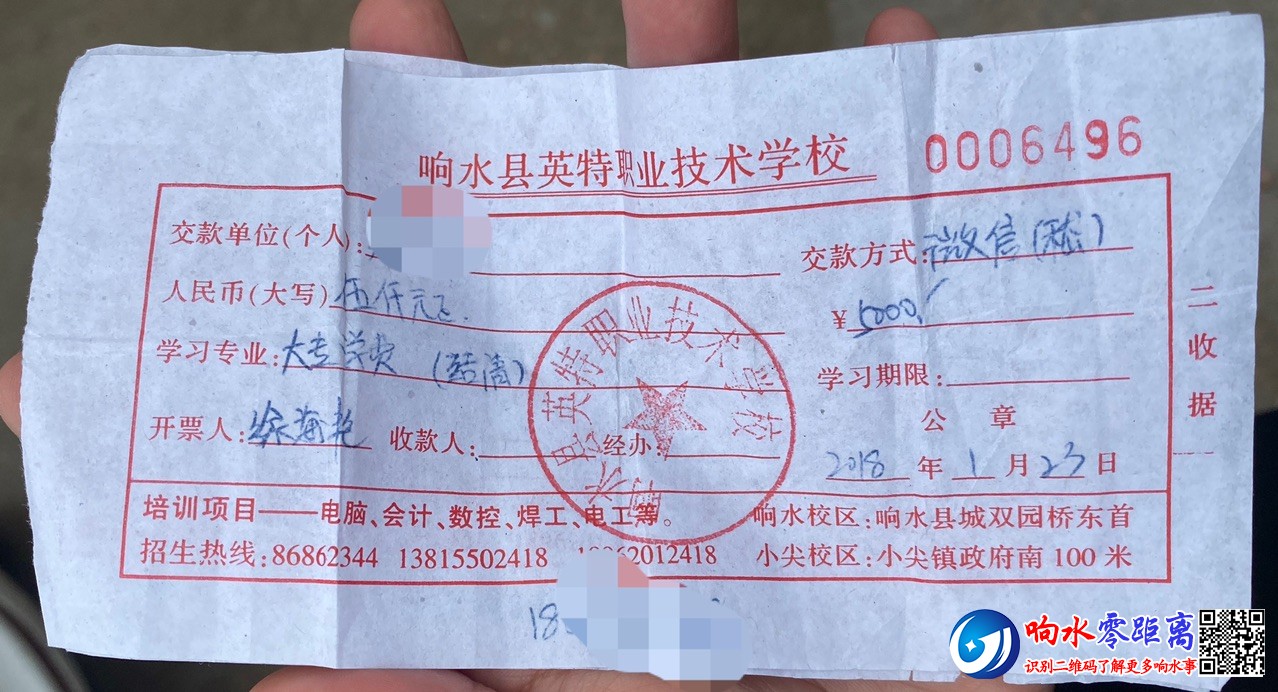 响水县英特职业技术学校
0006496
交款单位(个人): 交款方式:微信(
人民币(大写)伍仟元正. ¥5000.
学习专业:大专学费(结清) 学习期限:
公章
开票人:徐海艳 收款人: 经办:
2018年1月23日
二收据
响水县英特职业技术学校
培训项目——电脑、会计、数控、焊工、电工等。 响水校区:响水县城双园桥东首
招生热线:86862344 13815502418 2012418 小尖校区:小尖镇政府南100米
18
响水零距离
识别二维码了解更多响水事